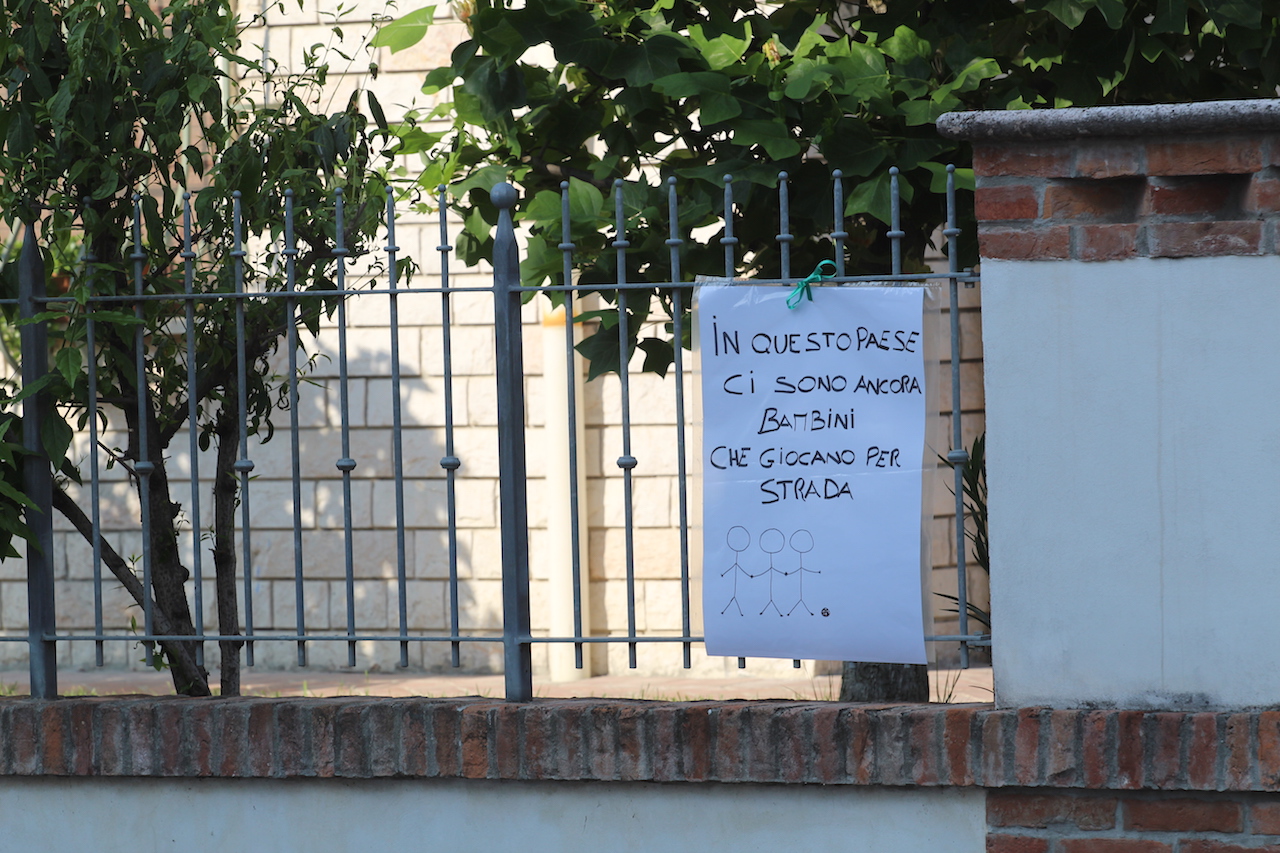 IN QUESTO PAESE
CI SONO ANCORA
BAMBINI
CHE GIOCANO PER
STRADA